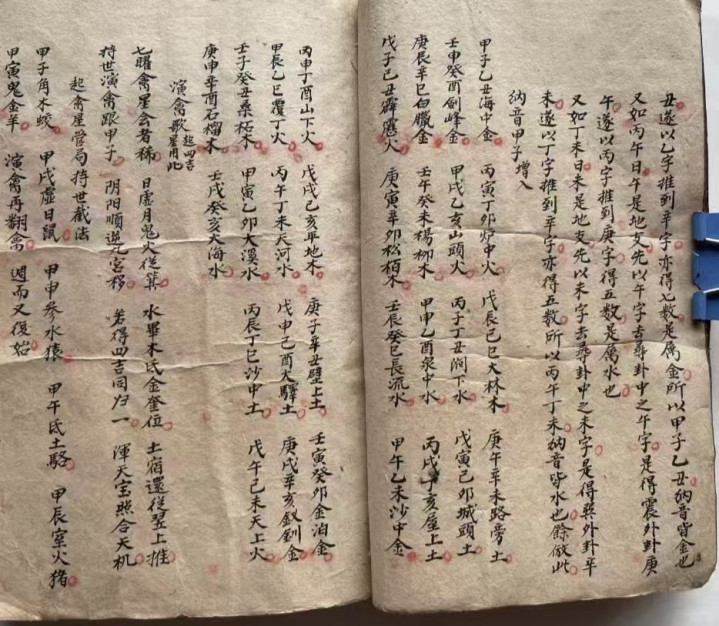 丑遂以乙字推到辛字亦得七數是属金所以甲子乙丑納音皆金也
又如丙午日午是地支先以午字去尋卦中之午字是得震外卦庚
午遂以丙字推到庚字得五數是属水也
又如丁未日未是地支先以未字去尋卦中之未字是得巽外卦辛
未遂以丁字推到辛字亦得五數所以丙午丁未納音皆水也餘倣此
納音甲子增入
甲子乙丑海中金 丙寅丁卯炉中火 戊辰己巳大林木 庚午辛未路旁土
壬申癸酉劍峰金 甲戌乙亥山頭火 丙子丁丑澗下水 戊寅己卯城頭土
庚辰辛巳白臘金 壬午癸未楊柳木 甲申乙酉泉中水 丙戌丁亥屋上土
戊子己丑霹靂火 庚寅辛卯松栢木 壬辰癸巳長流水 甲午乙未沙中金
丙申丁酉山下火 戊戌己亥平地木 庚子辛丑壁上土 壬寅癸卯金泊金
甲辰乙巳覆丁火 丙午丁未天河水 戊申己酉大驛土 庚戌辛亥釵釧金
壬子癸丑桑柘木 甲寅乙卯大溪水 丙辰丁巳沙中土 戊午己未天上火
庚申辛酉石榴木 壬戌癸亥大海水
演禽歌 起四吉星用此
七曜禽星会者稀 日虚月鬼火從箕 水畢木氐金奎位 土宿還從翌上推
持世演禽跟甲子 阴阳順逆九宮移 若得四吉同归一 渾天宝照合天机
起禽星管局持世截法
甲子角木蛟 甲戌虚日鼠 甲申参水猿 甲午氐土駱 甲辰室火猪
甲寅鬼金羊 演禽再翻禽 週而又復始